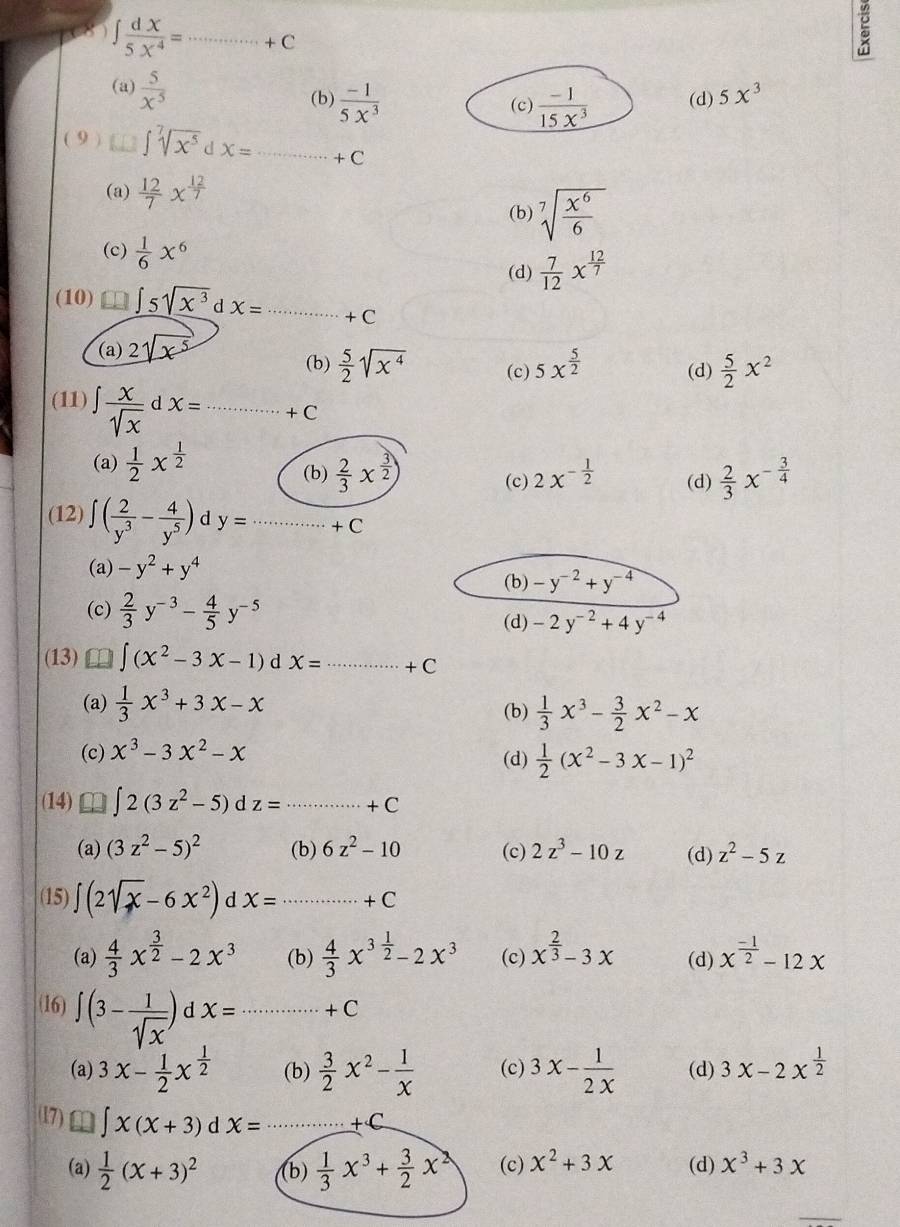 Exercis
(8) ∫ dx/(5x⁴) = .............. + C
(a) 5/x⁵ (b) −1/(5x³) (c) −1/(15x³) (d) 5x³
(9) ∫ ⁷√(x⁵) dx = .............. + C
(a) 12/7 x^(12/7) (b) ⁷√(x⁶/6)
(c) 1/6 x⁶ (d) 7/12 x^(12/7)
(10) ∫ 5√(x³) dx = .............. + C
(a) 2√(x⁵) (b) 5/2 √(x⁴) (c) 5x^(5/2) (d) 5/2 x²
(11) ∫ x/√x dx = .............. + C
(a) 1/2 x^(1/2) (b) 2/3 x^(3/2) (c) 2x^(−1/2) (d) 2/3 x^(−3/4)
(12) ∫ (2/y³ − 4/y⁵) dy = .............. + C
(a) −y² + y⁴ (b) −y⁻² + y⁻⁴
(c) 2/3 y⁻³ − 4/5 y⁻⁵ (d) −2y⁻² + 4y⁻⁴
(13) ∫ (x² − 3x − 1) dx = .............. + C
(a) 1/3 x³ + 3x − x (b) 1/3 x³ − 3/2 x² − x
(c) x³ − 3x² − x (d) 1/2 (x² − 3x − 1)²
(14) ∫ 2(3z² − 5) dz = .............. + C
(a) (3z² − 5)² (b) 6z² − 10 (c) 2z³ − 10z (d) z² − 5z
(15) ∫ (2√x − 6x²) dx = .............. + C
(a) 4/3 x^(3/2) − 2x³ (b) 4/3 x^(3 1/2) − 2x³ (c) x^(2/3) − 3x (d) x^(−1/2) − 12x
(16) ∫ (3 − 1/√x) dx = .............. + C
(a) 3x − 1/2 x^(1/2) (b) 3/2 x² − 1/x (c) 3x − 1/(2x) (d) 3x − 2x^(1/2)
(17) ∫ x(x + 3) dx = .............. + C
(a) 1/2 (x + 3)² (b) 1/3 x³ + 3/2 x² (c) x² + 3x (d) x³ + 3x